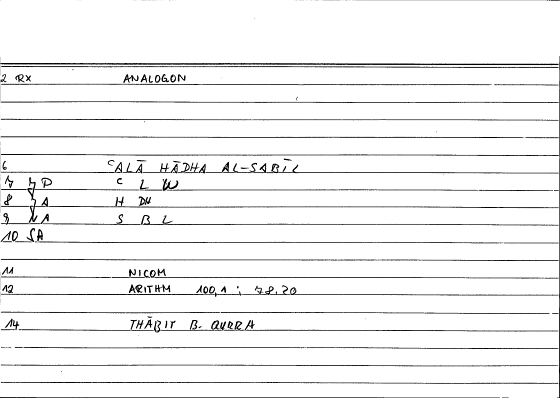 2 RX ANALOGON
6 ʿALĀ HĀDHA AL-SABĪL
7 P C L W
8 A H DH
9 A S B L
10 SA
11 NICOM
12 ARITHM 100,1 ; 78.20
14 THĀBIT B. QURRA